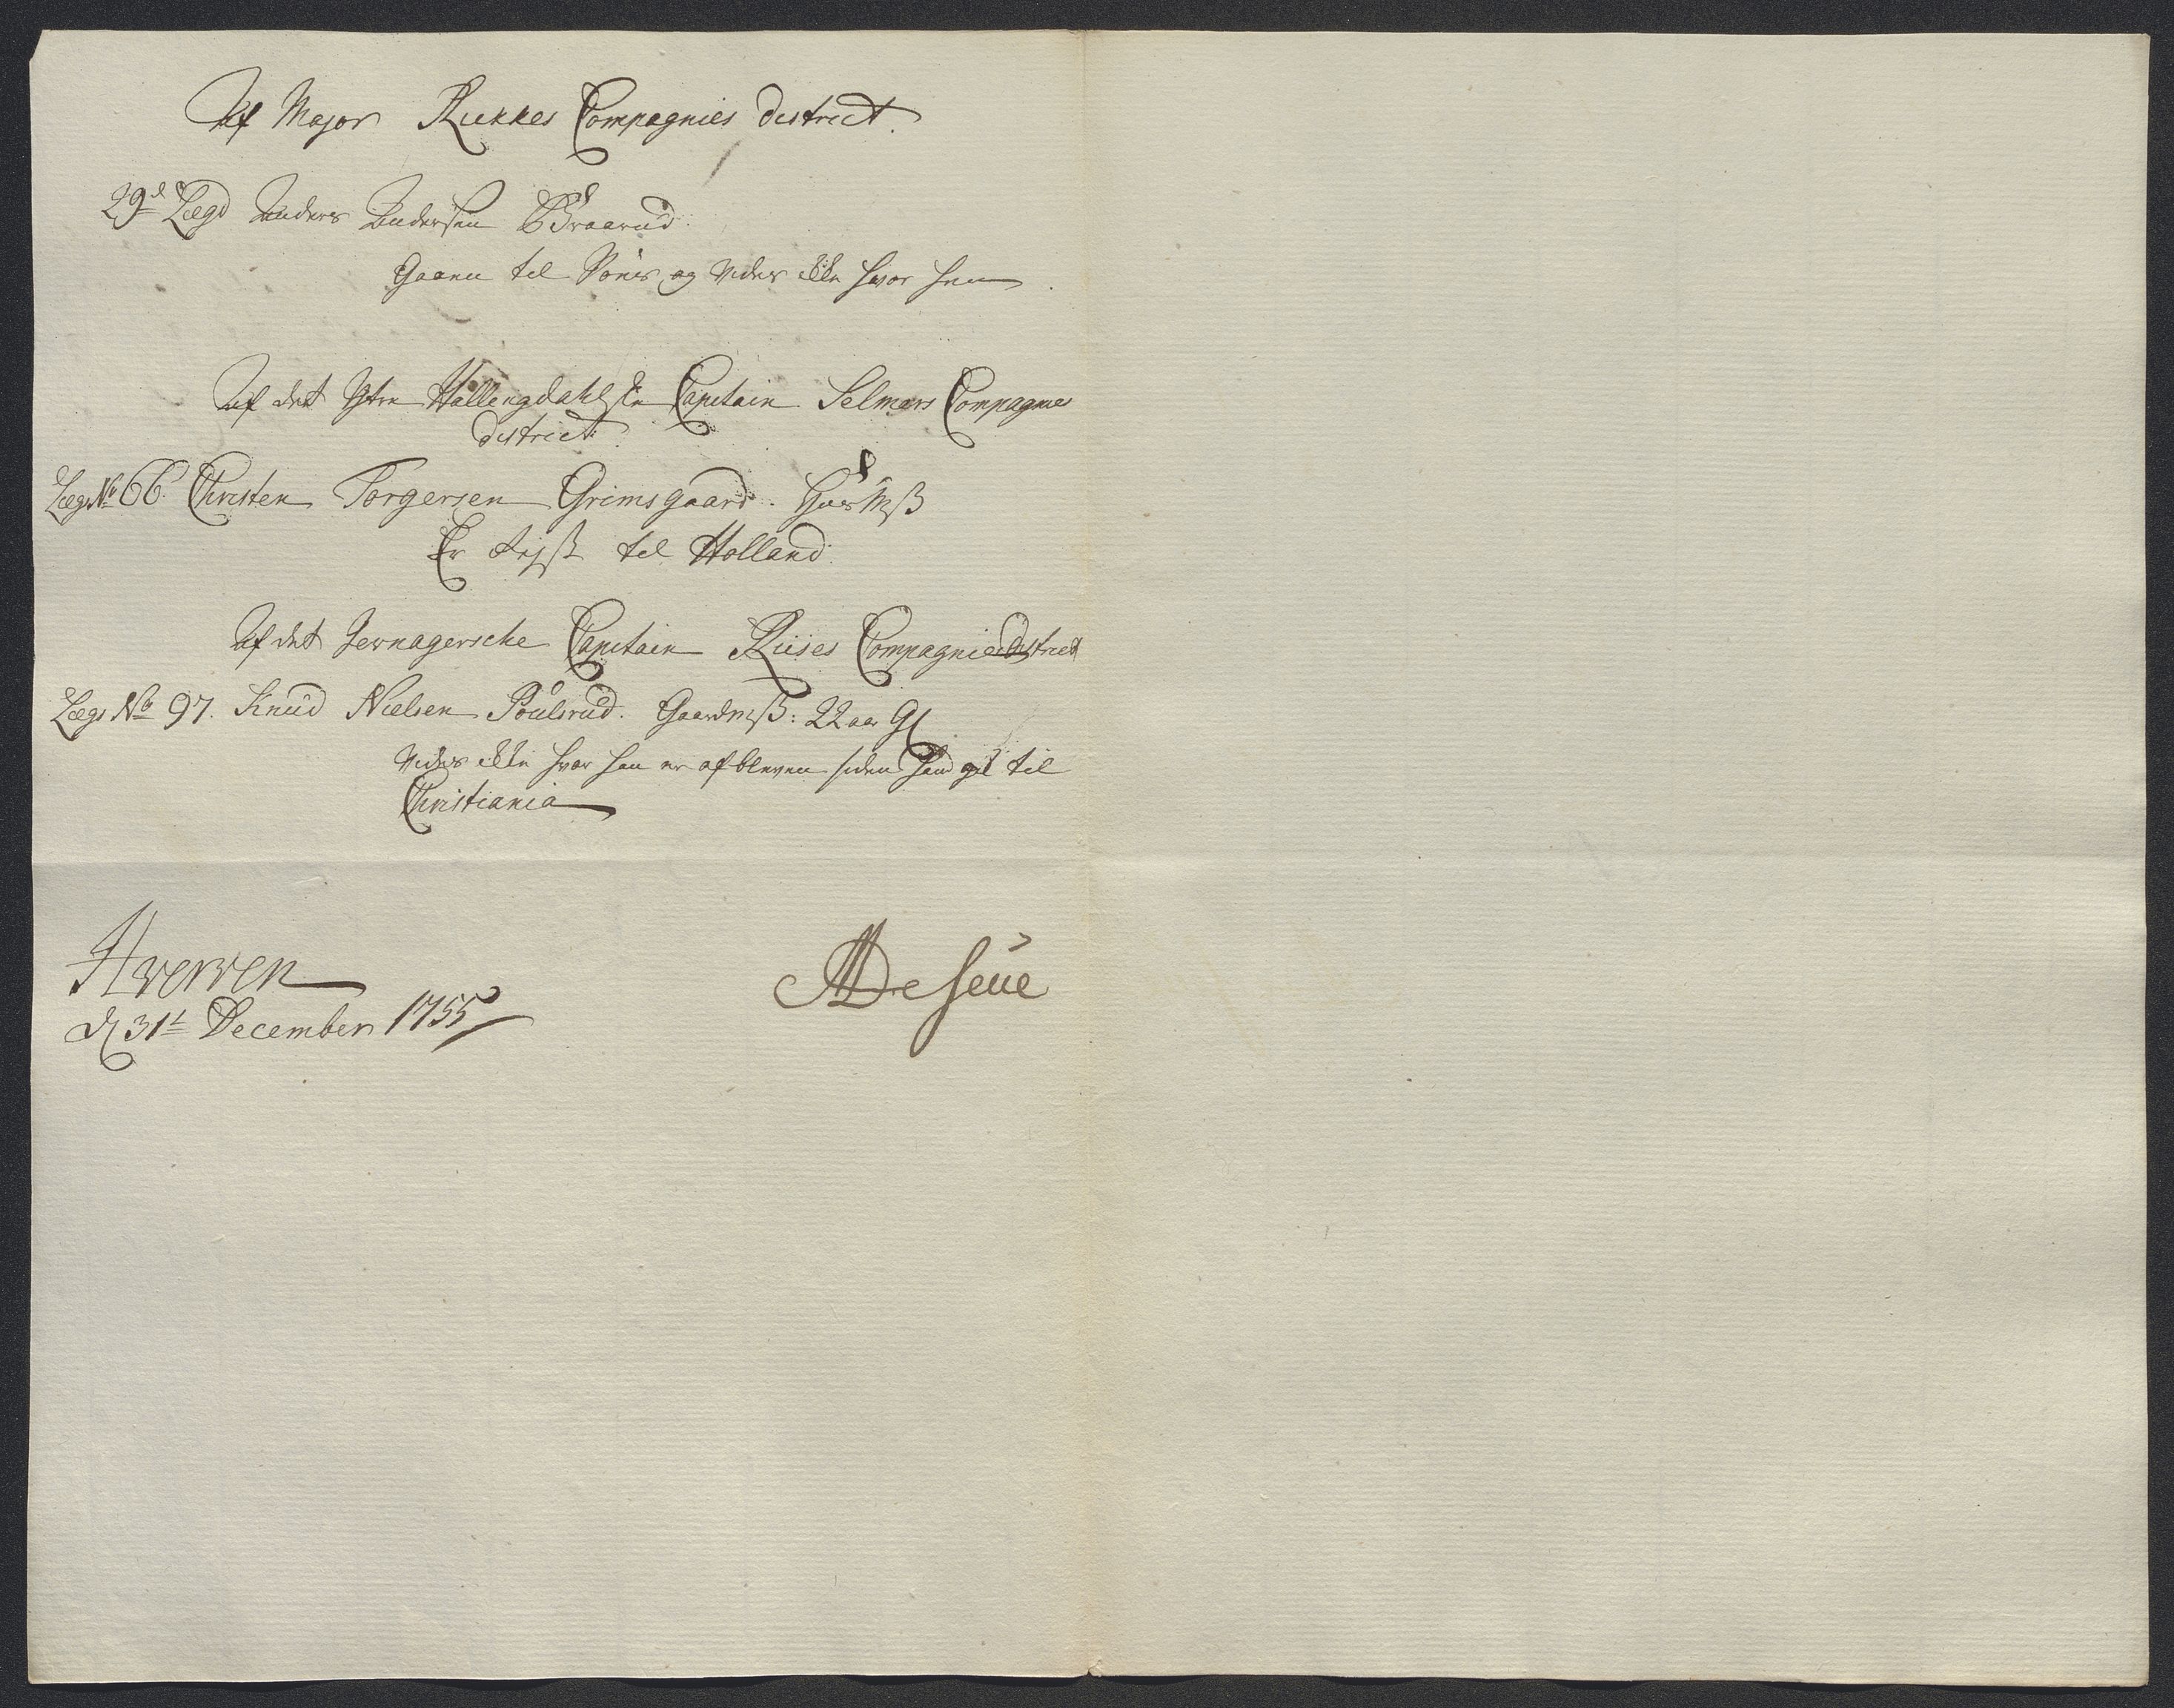 Af Major Rukkes Compagnies District.
29de Lægd Anders Andersen Braarud.
Gaaen til Søes og vides ikke hvor hen
Af det Ytre Hallingdahlske Capitain Selmers Compagnies
District
Lægs No 66. Christen Torgersen Grimsgaard.
Er Rejst til Holland.
Af det Jevnagersche Capitain Riises Compagnie District
Lægs No 97. Knud Nielsen Poulsrud. 22 aar Gl
vides ikke hvor han er afbleven siden hand gik til
Christiania
Hverven
d 31t December 1755
De Seue